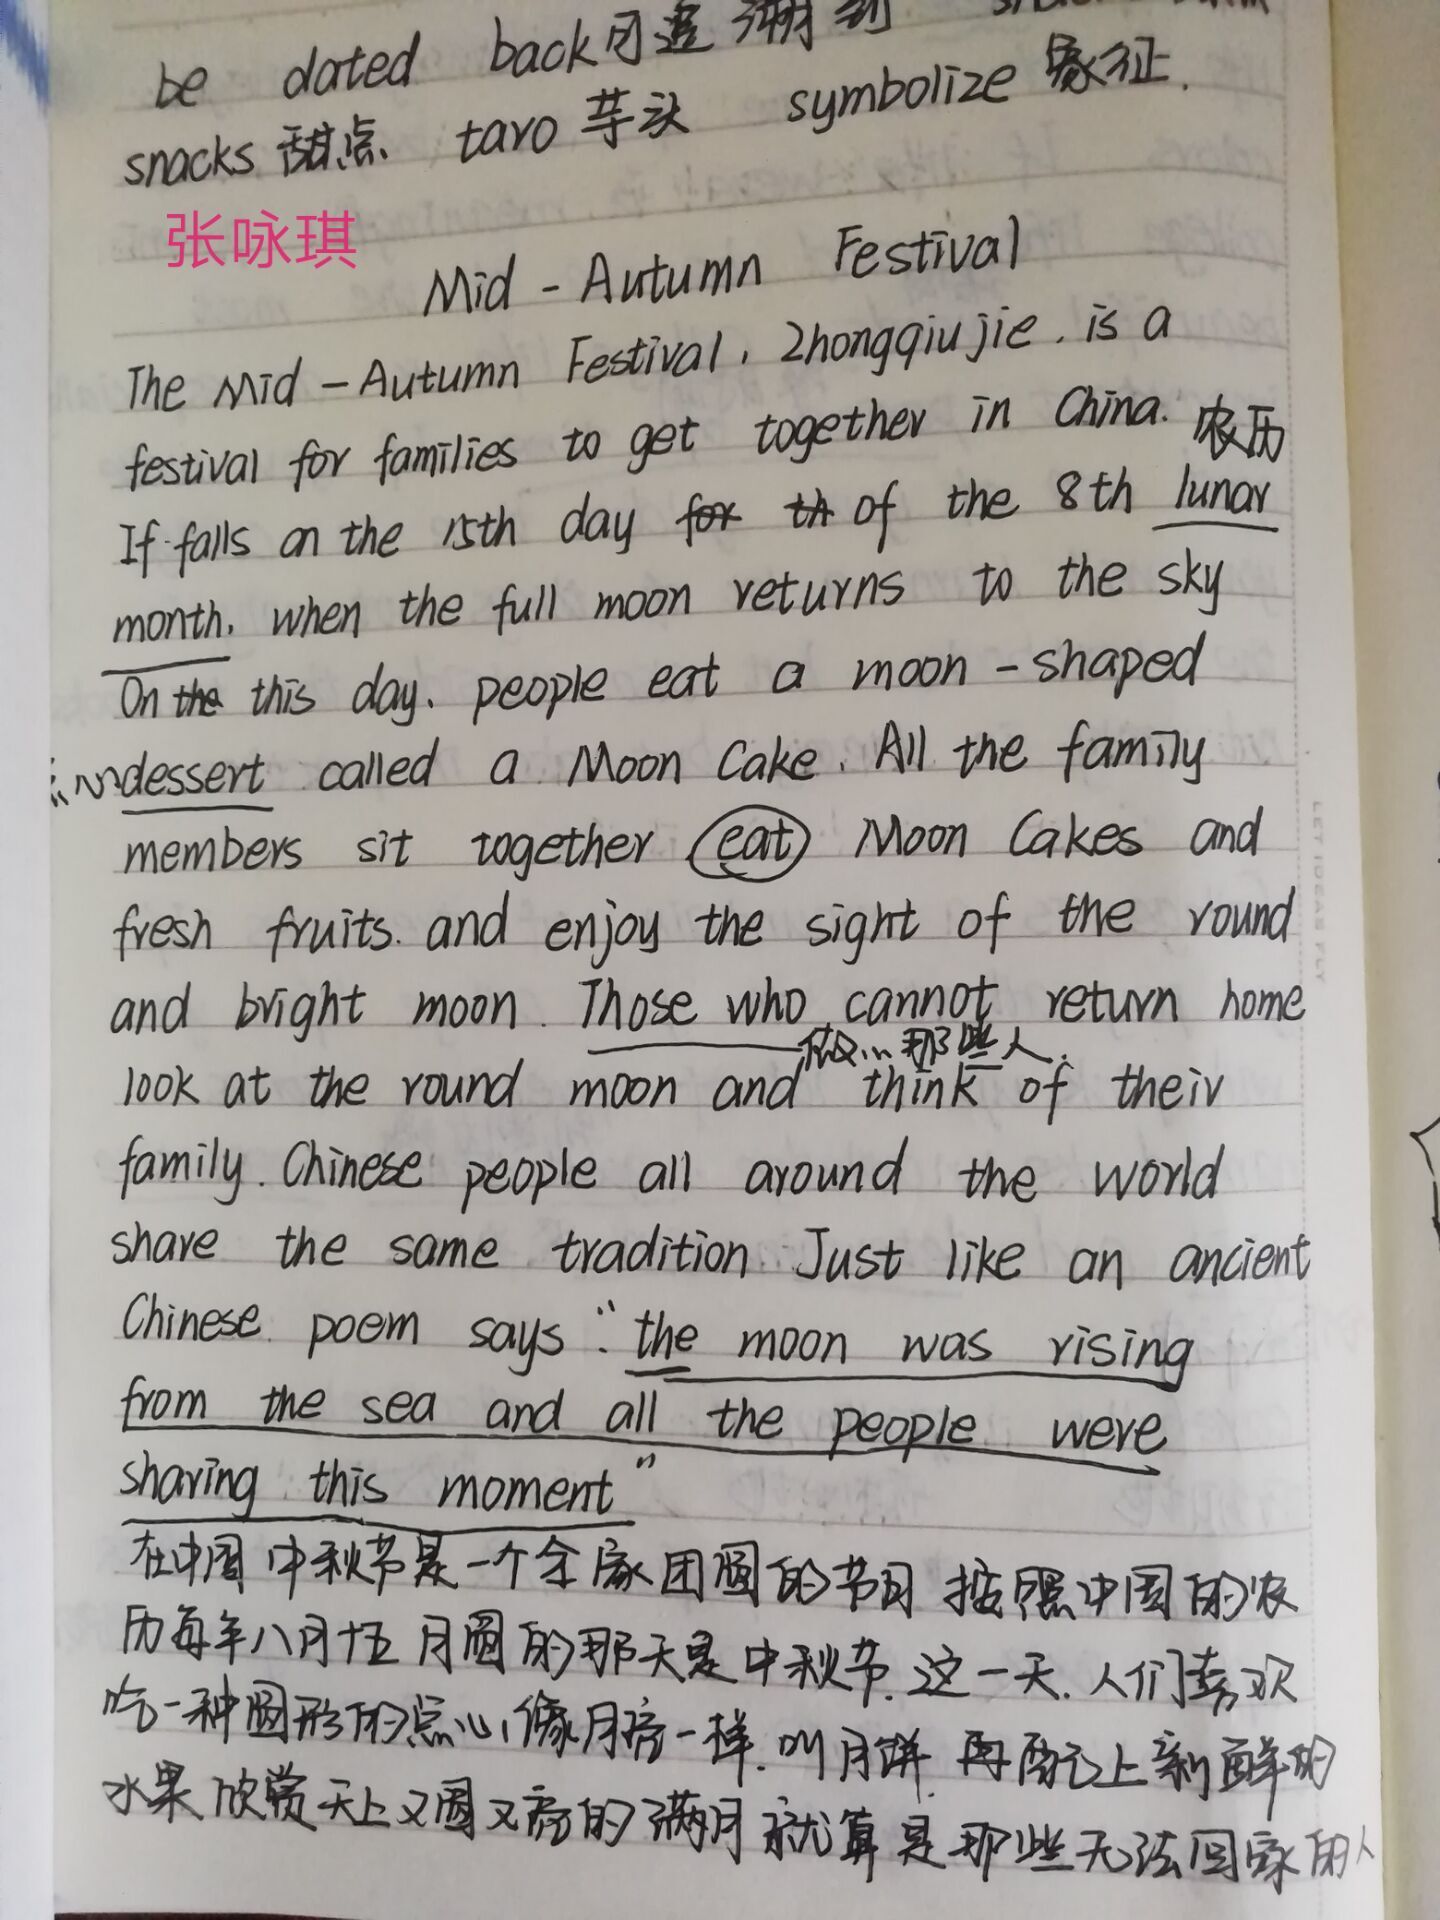 be dated back 可追溯到
snacks 甜点 taro 芋头 symbolize 象征.
张咏琪
Mid-Autumn Festival
The Mid-Autumn Festival, Zhongqiujie, is a
festival for families to get together in China.
农历
If falls on the 15th day for th of the 8th lunar
month, when the full moon returns to the sky
On the this day, people eat a moon-shaped
dessert called a Moon Cake. All the family
members sit together eat Moon Cakes and
fresh fruits. and enjoy the sight of the round
and bright moon. Those who cannot return home
做...那些人.
look at the round moon and think of their
family. Chinese people all around the world
share the same tradition. Just like an ancient
Chinese poem says: "the moon was rising
from the sea and all the people were
sharing this moment"
在中国 中秋节是一个全家团圆的节日 按照中国的农
历每年八月十五 月圆的那天是中秋节. 这一天. 人们喜欢
吃一种圆形的点心, 像月亮一样. 叫月饼. 再配上新鲜的
水果 欣赏天上又圆又亮的满月 就算是那些无法回家的人